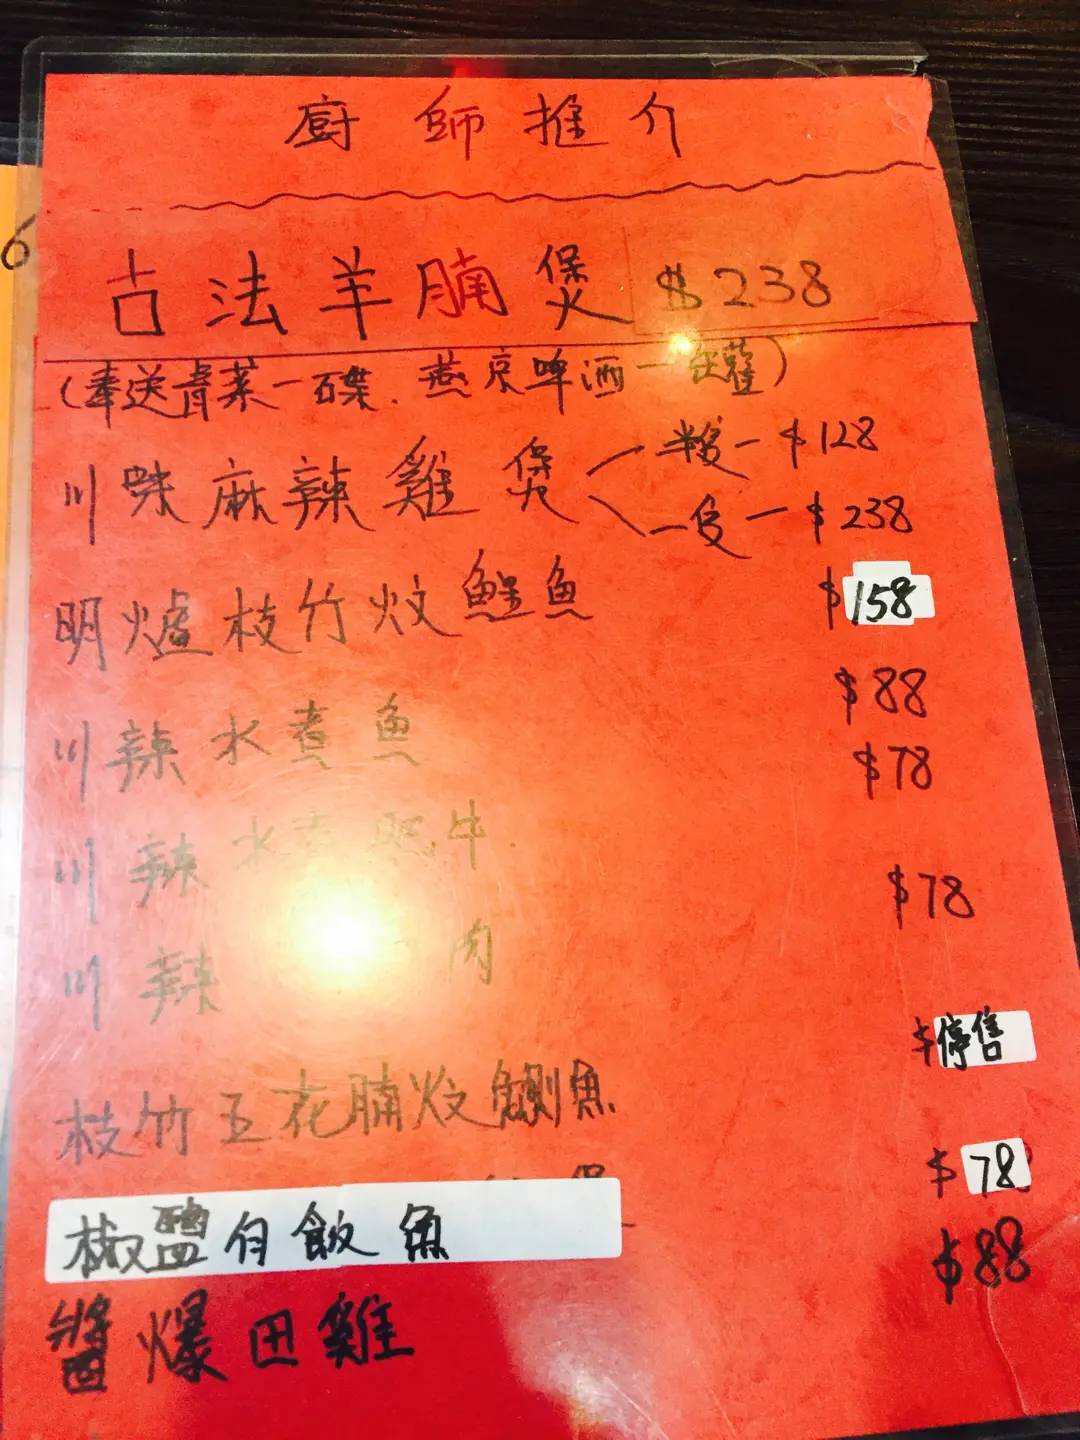 廚師推介
古法羊腩煲 $238
(奉送青菜一碟.燕京啤酒一罐)
川味麻辣雞煲 半隻一$128
一隻一$238
明爐枝竹炆鯉魚 $158
川辣水煮魚 $88
川辣水煮肥牛 $78
川辣 肉 $78
枝竹五花腩炆鯏魚 $停售
椒鹽白飯魚 $78
醬爆田雞 $88
6